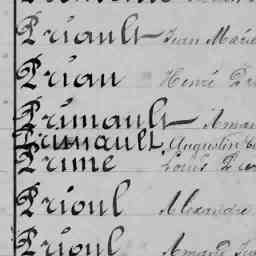 Priault Jean Marie
Priau Henri
Primault
Primault Augustin
Prime Louis
Prioul Alexandre
Prioul Amand